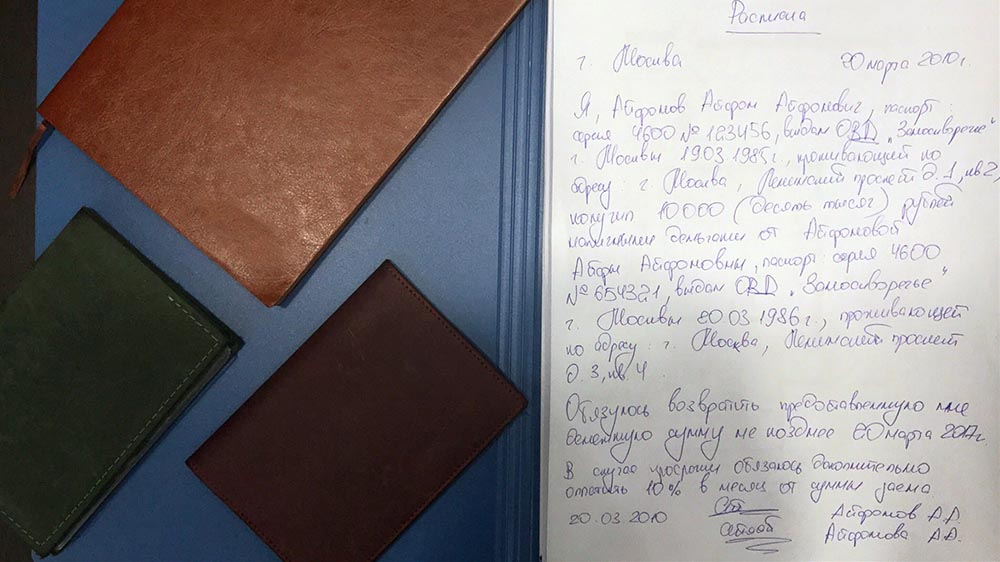 Расписка
г. Москва 20 марта 2010 г.
Я, Айфонов Айфон Айфонович, паспорт:
серия 4600 № 123456, выдан ОВД „Замоскворечье“
г. Москвы 19.03.1985 г., проживающий по
адресу: г. Москва, Ленинский проспект д. 1, кв 2,
получил 10 000 (десять тысяч) рублей
наличными деньгами от Айфоновой
Айфон Айфоновны, паспорт: серия 4600
№ 654321, выдан ОВД „Замоскворечье“
г. Москвы 20.03.1986 г., проживающей
по адресу: г. Москва, Ленинский проспект
д. 3, кв. 4.
Обязуюсь возвратить предоставленную мне
денежную сумму не позднее 20 марта 2017 г.
В случае просрочки обязуюсь дополнительно
оплатить 10% в месяц от суммы займа
20.03.2010 Айфонов А.А.
Айфонова А.А.